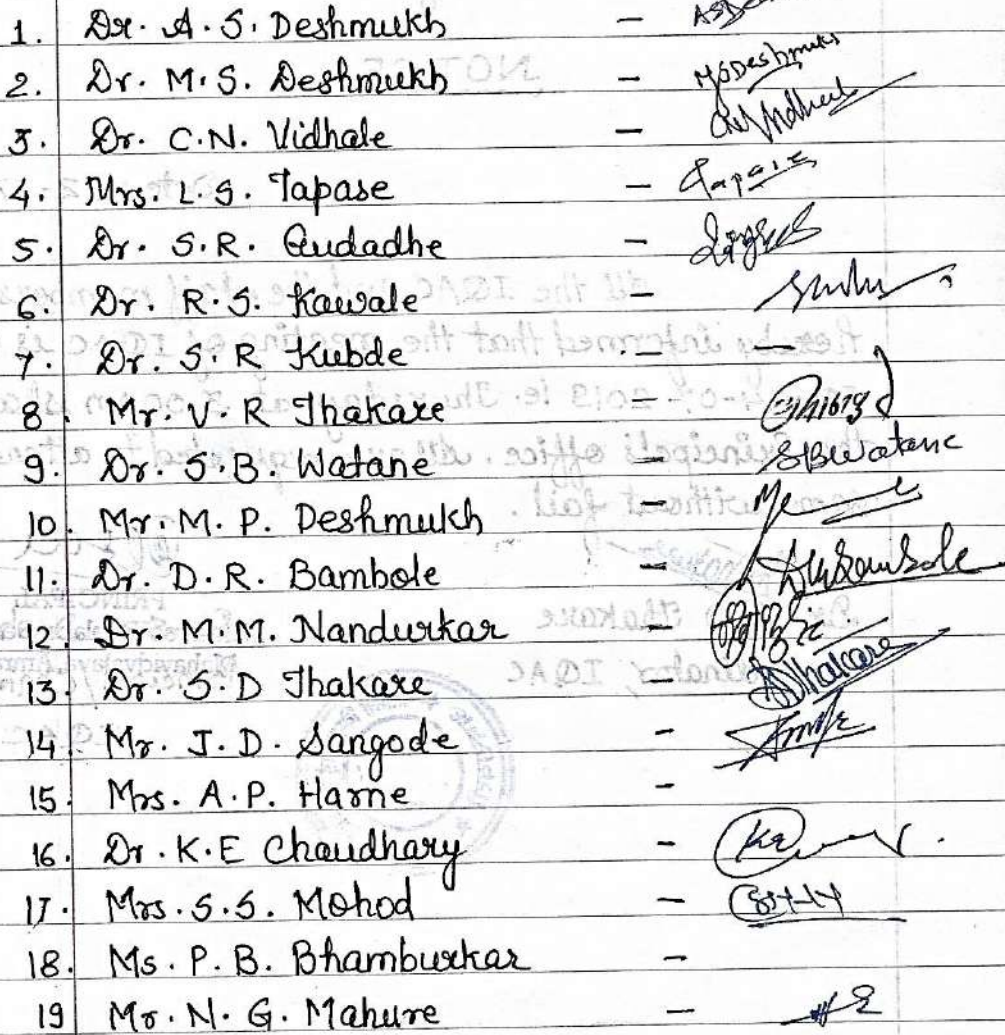 1. Dr. A. S. Deshmukh -
2. Dr. M. S. Deshmukh - MSDeshmukh
3. Dr. C.N. Vidhale -
4. Mrs. L. S. Tapase - Tapase
5. Dr. S.R. Gudadhe -
6. Dr. R.S. Kawale -
7. Dr. S. R Kubde - —
8 Mr. V. R Thakare -
9. Dr. S.B. Watane - SBWatane
10. Mr. M. P. Deshmukh -
11. Dr. D.R. Bambole - Bambole
12. Dr. M.M. Nandurkar -
13. Dr. S.D Thakare - Thakare
14. Mr. J.D. Sangode -
15. Mrs. A.P. Harne -
16. Dr. K.E Chaudhary -
17. Mrs. S.S. Mohod -
18. Ms. P. B. Bhamburkar -
19 Mr. N. G. Mahure -